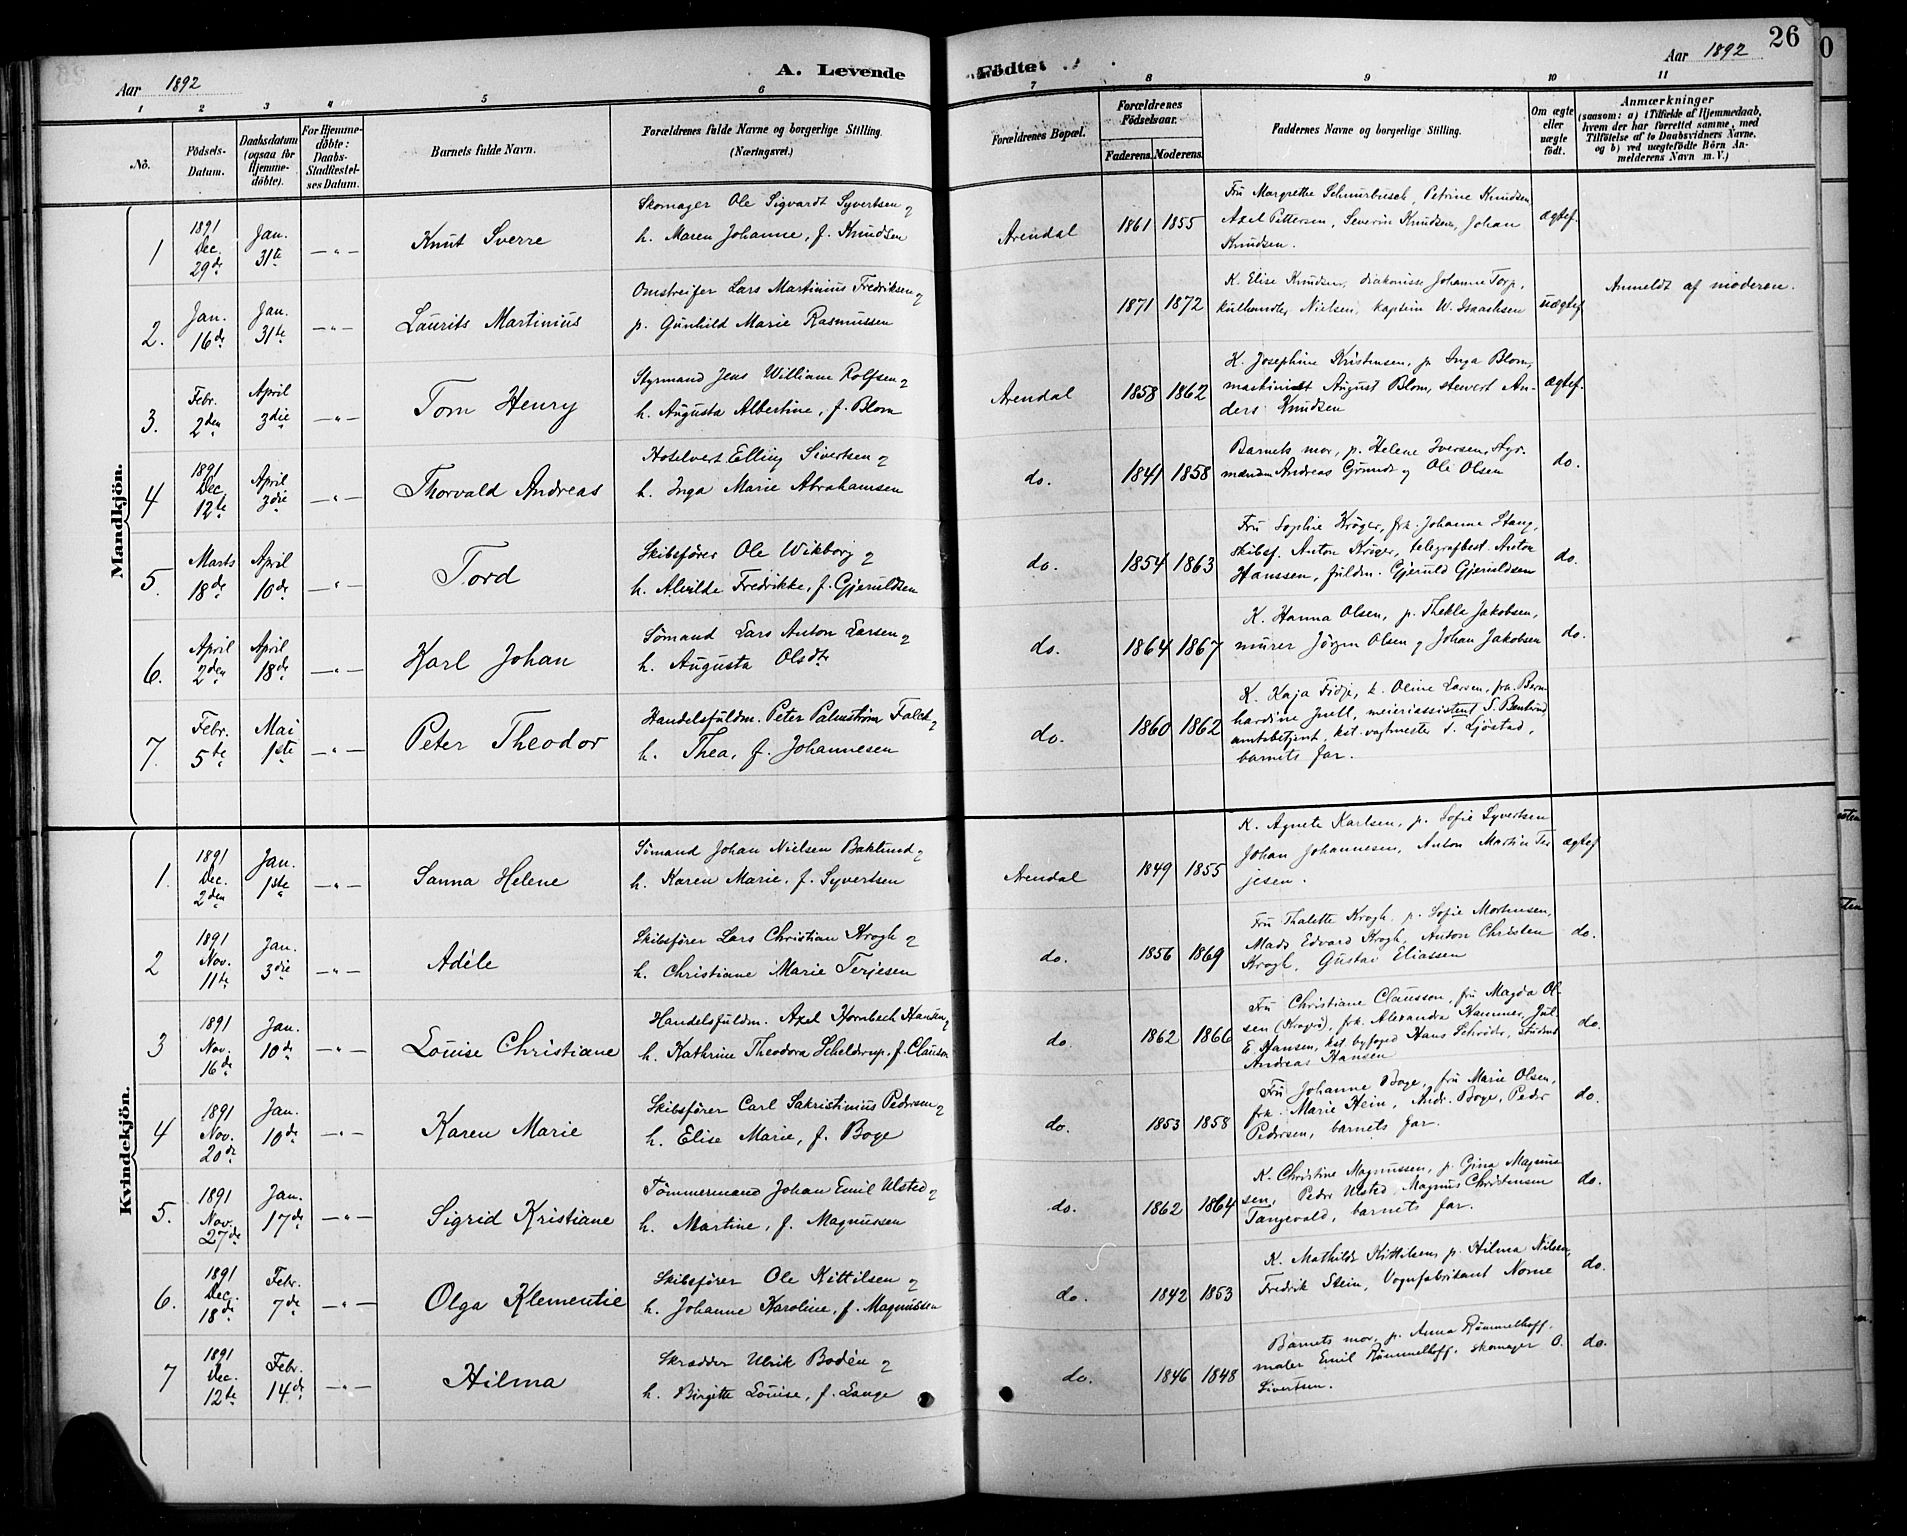 26
Aar 1892
A. Levende
Födte.
Aar 1892
1 2 3 4 5 6 7 8 9 10 11
No.
Födsels-
Datum.
Daabsdatum
(ogsaa for
Hjemme-
döbte).
For Hjemme-
döbte:
Daabs-
Stadfæstel-
ses Datum.
Barnets fulde Navn.
Forældrenes fulde Navne og borgerlige Stilling.
(Næringsvei.)
Forældrenes Bopæl.
Forældrenes
Födselsaar.
Faderens. Moderens.
Faddernes Navne og borgerlige Stilling.
Om ægte
eller
uægte
født.
Anmærkninger
(saasom: a) i Tilfælde af Hjemmedaab,
hvem der har forrettet samme, med
Tilföielse af to Daabsvidners Navne.
og b) ved uægtefödte Börn An-
melderens Navn m. V.)
Mandkjön.
1 1891 Dec. 29de Jan. 31te —"— Knut Sverre
Skomager Ole Sigvardt Syvertsen og
h. Maren Johanne, f. Knudsen
Arendal 1861 1855
Fru Margrethe Schnurbusch, Petrine Knudsen,
Axel Pettersen, Severin Knudsen, Johan
Knudsen.
ægtef.
2. Jan. 16de Jan. 31te —"— Laurits Martinius
Omstreifer Lars Martinius Fredriksen og
p. Gunhild Marie Rasmussen
1871 1872
K. Elise Knudsen, diakonisse Johanne Torp,
kulhandler Nielsen, kaptein W. Isaachsen
uægtef.
Anmeldt af moderen.
3. Febr. 2den April 3die —"— Tom Henry
Styrmand Jens William Rolfsen og
h. Augusta Albertine, f. Blom
Arendal 1858 1862
K. Josephine Kristensen, p. Inga Blom,
maskinist August Blom, stewert An-
ders Knudsen
ægtef.
4 1891 Dec. 12te April 3die —"— Thorvald Andreas
Hotelvert Elling Sivertsen og
h. Inga Marie Abrahamsen
do. 1841 1858
Barnets mor, p. Helene Iversen, styr-
mændene Andreas Grunde og Ole Olsen
do.
5. Marts 18de April 10de —"— Tord
Skibsfører Ole Wikborg og
h. Alvilde Fredrikke, f. Gjeruldsen
do. 1854 1863
Fru Sophie Krøger, frk. Johanne Stang,
skibsf. Anton Krøger, telegrafbest. Anton
Hanssen, fuldm. Gjeruld Gjeruldsen
do.
6. April 2den April 18de —"— Karl Johan
Sømand Lars Anton Larsen og
h. Augusta Olsdtr
do. 1864 1867
K. Hanna Olsen, p. Thekla Jakobsen,
murer Jörgen Olsen og Johan Jakobsen
do.
7. Febr. 5te Mai 1ste —"— Peter Theodor
Handelsfuldm. Peter Palmstrøm Falck og
h. Thea, f. Johannesen
do. 1860 1862
K. Kaja Fidje, k. Oline Larsen, frk. Bern-
hardine Juell, meieriassistent S.
amtsbetjent, kst. vagtmester T. Sjöstad,
barnets far.
Kvindekjön.
1. 1891 Dec. 2den Jan. 1ste —"— Sanna Helene
Sømand Johan Nielsen Baklund og
h. Karen Marie, f. Syvertsen
Arendal 1849 1855
K. Agnete Karlsen, p. Sofie Syvertsen
Johan Johannesen, Anton Martin Ter
jesen.
ægtef
2 1891 Nov. 11te Jan. 3die —"— Adéle
Skibsfører Lars Christian Krogh og
h. Christiane Marie Terjesen
do. 1856 1869
Fru Thalette Krogh, p. Sofie Mortensen,
Mads Edvard Krogh, Anton Christen
Krogh, Gustav Eliassen
do.
3 1891 Nov. 16de Jan. 10de —"— Louise Christiane
Handelsfuldm. Axel Hornbech Hansen og
h. Kathrine Theodora Scheldrup, f. Clauson
do. 1862 1866
Fru Christiane Clausson, fru Magda Ol-
sen (Kragerø), frk. Alexandra Hammer, Jul.
E. Hansen, kst. byfoged Hans Schrøder, student
Andreas Hansen
do.
4 1891 Nov. 20de Jan. 10de —"— Karen Marie
Skibsfører Carl Sakristinius Pedersen og
h. Elise Marie, f. Boge
do. 1853 1858
Fru Johanne Boge, fru Marie Olsen,
frk. Marie Hein, Andr. Boge, Peder
Pedersen, barnets far.
do.
5. 1891 Nov. 27de Jan. 17de —"— Sigrid Kristiane
Tömmermand Johan Emil Ulsted og
h. Martine, f. Magnussen
do. 1862 1864
K. Christine Magnussen, p. Gina Magnus
sen, Peder Ulsted, Magnus Christensen
Tangevald, barnets far.
do.
6. 1891 Dec. 18de Febr. 7de —"— Olga Klementie
Skibsfører Ole Kittilsen og
h. Johanne Karoline, f. Magnussen
do. 1842 1853
K. Mathilde Kittilsen, p. Hilma Nilsen,
Fredrik Stein, Vognfabrikant Norne
do.
7 1891 Dec. 12te Febr. 14de —"— Hilma
Skrædder Ulrik Bodén og
h. Birgitte Louise, f. Lange
do. 1846 1848
Barnets mor, p. Anna Rømmelhoff,
maler Emil Rømmelhoff, skomager O.
Sivertsen.
do.